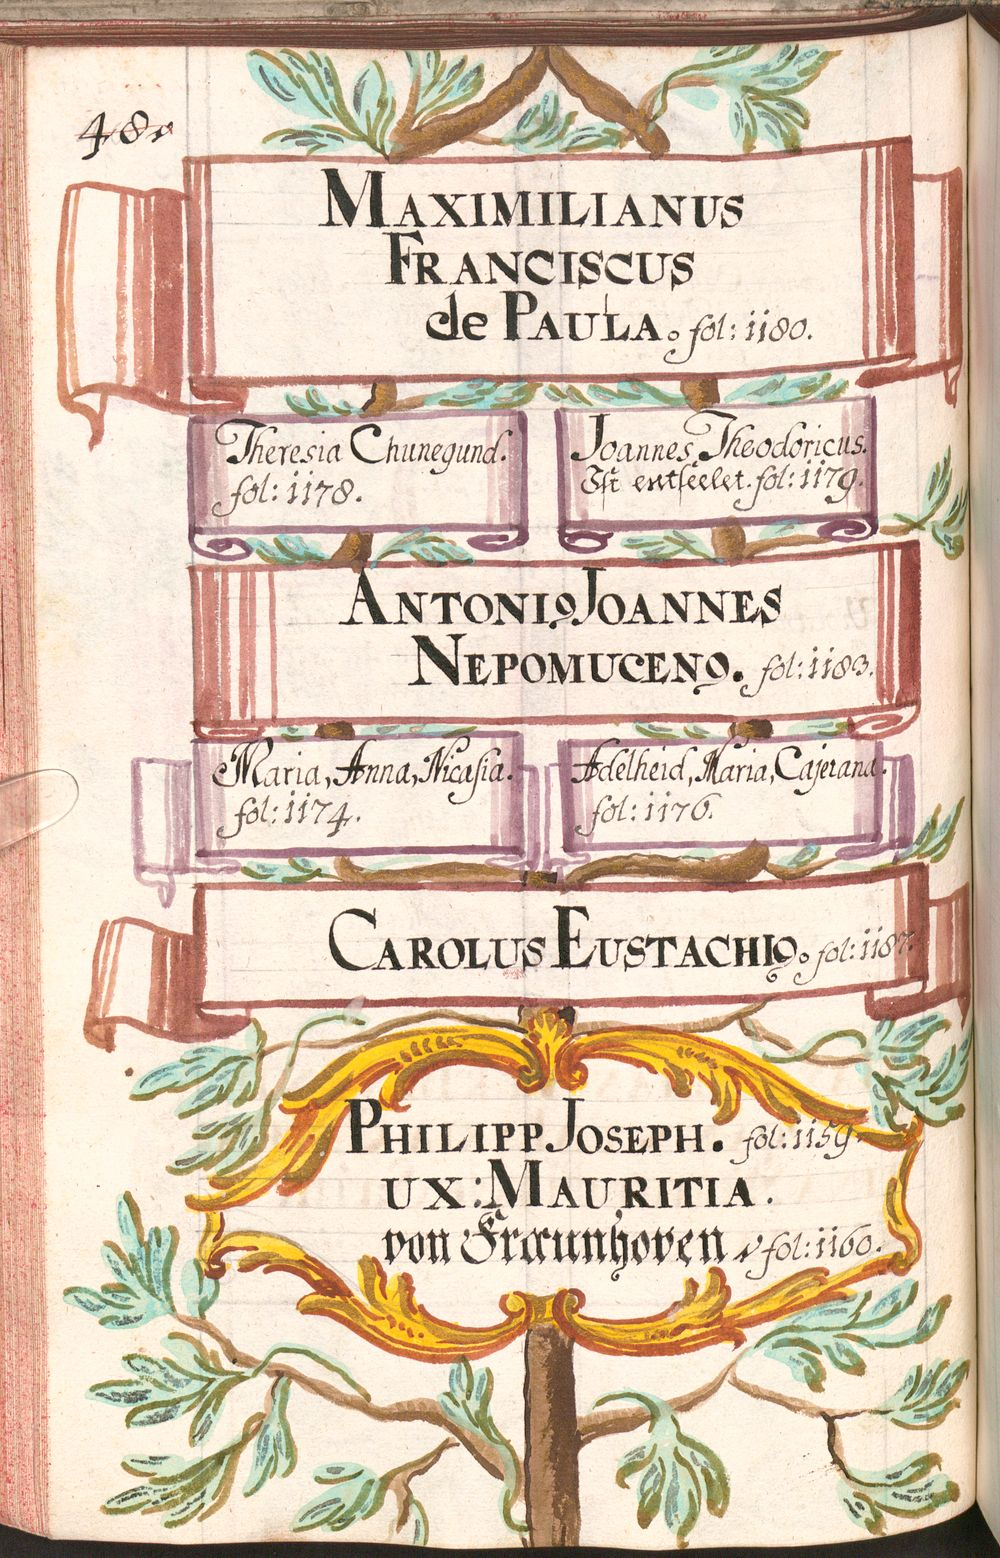 48.
MAXIMILIANUS
FRANCISCUS
de PAULA. fol: 1180.
Theresia Chunegund.
fol: 1178.
Joannes Theodoricus.
Ist entseelet. fol: 1179.
ANTONIꝰ JOANNES
NEPOMUCENꝰ. fol: 1183.
Maria, Anna, Nicasia.
fol: 1174.
Adelheid, Maria, Cajetana.
fol: 1176.
CAROLUS EUSTACHIꝰ. fol: 1187.
PHILIPP JOSEPH. fol: 1159.
UX: MAURITIA.
von Fraunhoven fol: 1160.